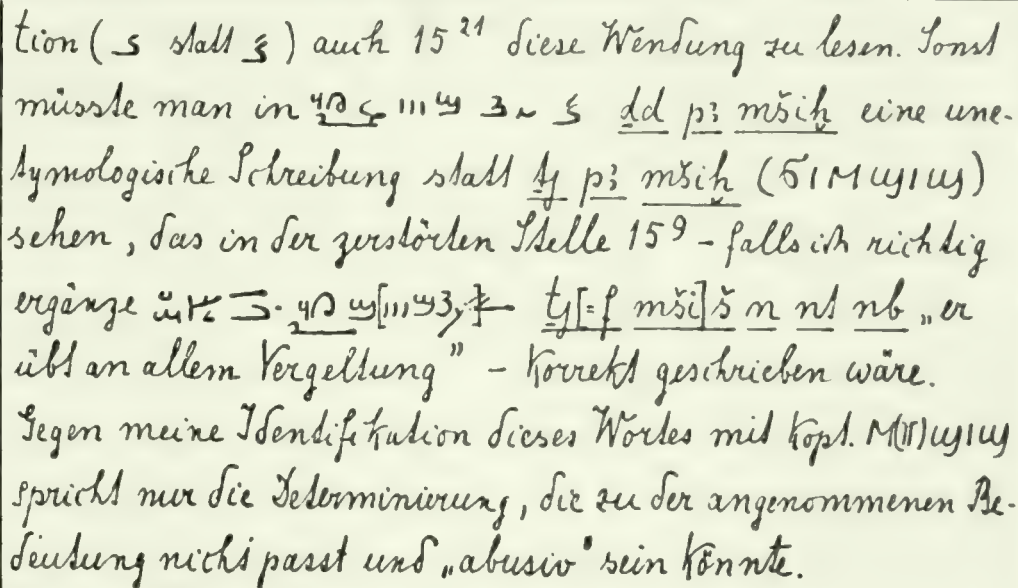 tion ( statt ) auch 15²¹ diese Wendung zu lesen. Sonst
müsste man in ḏd pꜣ mšiḫ eine une-
tymologische Schreibung statt ṯj pꜣ mšiḫ (ϭⲓ ⲙϣⲓϣ)
sehen, das in der zerstörten Stelle 15⁹ – falls ich richtig
ergänze ṯj[=f mši]š n nt nb „er
übt an allem Vergeltung" – korrekt geschrieben wäre.
Gegen meine Identifikation dieses Wortes mit kopt. ⲙ(ⲡ)ϣⲓϣ
spricht nur die Determinierung, die zu der angenommenen Be-
deutung nicht passt und „abusiv" sein könnte.